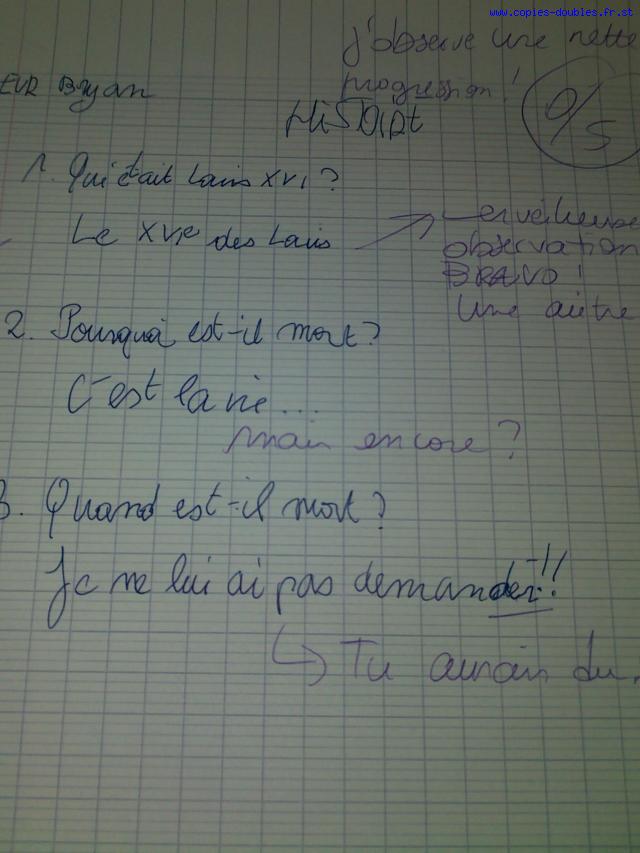 www.copies-doubles.fr.st
j'observe une nette
progression !
EUR Bryan
HiSTOiRE
0/5
1. Qui était Louis XVI ?
Le XVIe des Louis
merveilleuse
observation
BRAVO !
Une autre
2. Pourquoi est-il mort ?
C'est la vie...
mais encore ?
3. Quand est-il mort ?
Je ne lui ai pas demander !!
Tu aurais du.